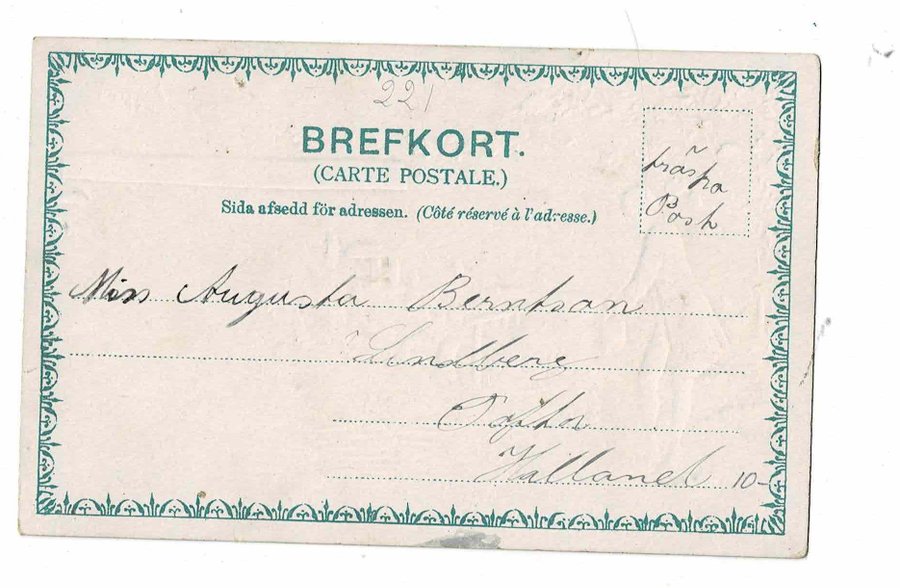 221
BREFKORT.
(CARTE POSTALE.)
Sida afsedd för adressen. (Côté réservé à l'adresse.)
Post
Miss Augusta Berntson
Lindberg
Tofta
Halland 10-